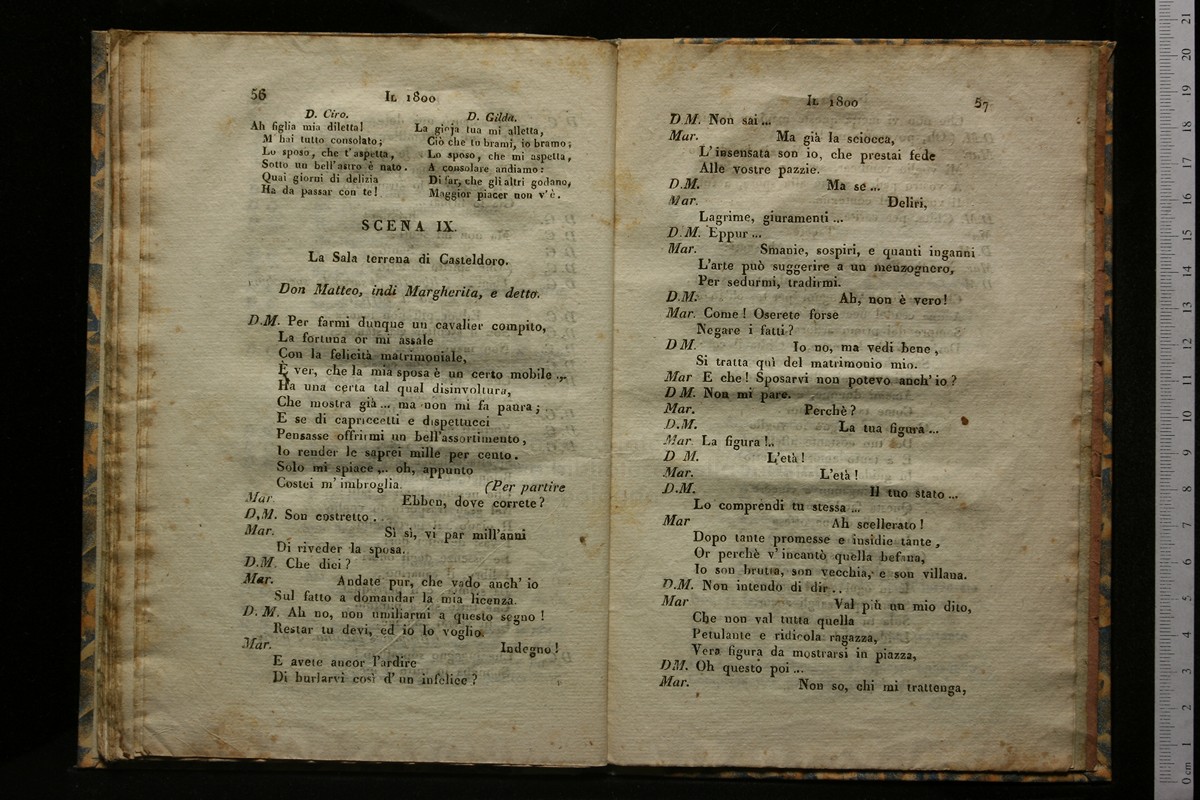 56
IL 1800
D. Ciro.
Ah figlia mia diletta!
M' hai tutto consolato;
Lo sposo, che t'aspetta,
Sotto un bell'astro è nato.
Quai giorni di delizia
Ha da passar con te!
D. Gilda.
La gioja tua mi alletta,
Ciò che tu brami, io bramo;
Lo sposo, che mi aspetta,
A consolare andiamo:
Di far, che gli altri godano,
Maggior piacer non v'è.
SCENA IX.
La Sala terrena di Casteldoro.
Don Matteo, indi Margherita, e detto.
D.M. Per farmi dunque un cavalier compito,
La fortuna or mi assale
Con la felicità matrimoniale,
È ver, che la mia sposa è un certo mobile ...
Ha una certa tal qual disinvoltura,
Che mostra già ... ma non mi fa paura;
E se di capriccetti e dispettucci
Pensasse offrirmi un bell'assortimento,
Io render le saprei mille per cento.
Solo mi spiace ... oh, appunto
Costei m' imbroglia. (Per partire
Mar Ebben, dove correte?
D.M. Son costretto ..
Mar. Sì sì, vi par mill'anni
Di riveder la sposa.
D.M. Che dici?
Mar. Andate pur, che vado anch' io
Sul fatto a domandar la mia licenza.
D. M. Ah no, non umiliarmi a questo segno!
Restar tu devi, ed io lo voglio.
Mar. Indegno!
E avete ancor l'ardire
Di burlarvi così d' un infelice?
IL 1800
57
D M. Non sai ...
Mar. Ma già la sciocca,
L'insensata son io, che prestai fede
Alle vostre pazzie.
D.M. Ma se ...
Mar. Deliri,
Lagrime, giuramenti ...
D.M. Eppur ...
Mar. Smanie, sospiri, e quanti inganni
L'arte può suggerire a un menzognero,
Per sedurmi, tradirmi.
D.M. Ah, non è vero!
Mar. Come! Oserete forse
Negare i fatti?
D M. Io no, ma vedi bene,
Si tratta quì del matrimonio mio.
Mar E che! Sposarvi non potevo anch' io?
D M. Non mi pare.
Mar. Perchè?
D.M. La tua figura ...
Mar. La figura!..
D M. L'età!
Mar. L'età!
D.M. Il tuo stato ...
Lo comprendi tu stessa ...
Mar Ah scellerato!
Dopo tante promesse e insidie tante,
Or perchè v' incantò quella befana,
Io son brutta, son vecchia, e son villana.
D.M. Non intendo di dir ..
Mar Val più un mio dito,
Che non val tutta quella
Petulante e ridicola ragazza,
Vera figura da mostrarsi in piazza,
DM. Oh questo poi ...
Mar. Non so, chi mi trattenga,
0 cm 1 2 3 4 5 6 7 8 9 10 11 12 13 14 15 16 17 18 19 20 21